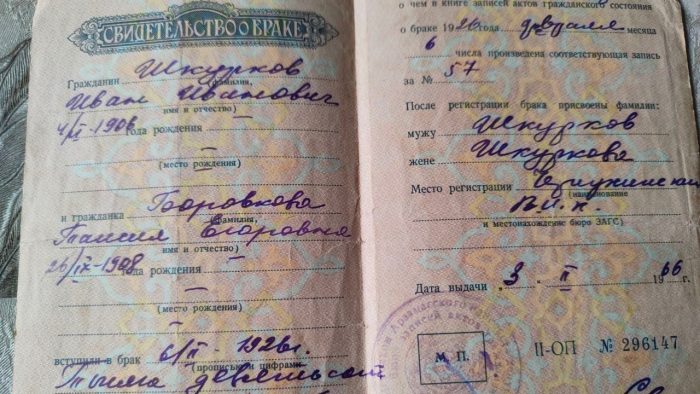 СВИДЕТЕЛЬСТВО О БРАКЕ
Гражданин Шкурков
(фамилия,
Иван Иванович
имя и отчество)
4/II-1906 года рождения
—
(место рождения)
—
и гражданка Боровкова
(фамилия,
Таисия Егоровна
имя и отчество)
26/IX-1908 года рождения
—
(место рождения)
—
вступили в брак 6/II-1926г.
(прописью и цифрами)
Тысяча девятьсот
о чем в книге записей актов гражданского состояния
о браке 1926 года февраля месяца
6 числа произведена соответствующая запись
за № 57
После регистрации брака присвоены фамилии:
мужу Шкурков
жене Шкуркова
Место регистрации
(наименование
и местонахождение бюро ЗАГС)
Дата выдачи „3 „ II 1966 г.
М. П.
II-ОП № 296147